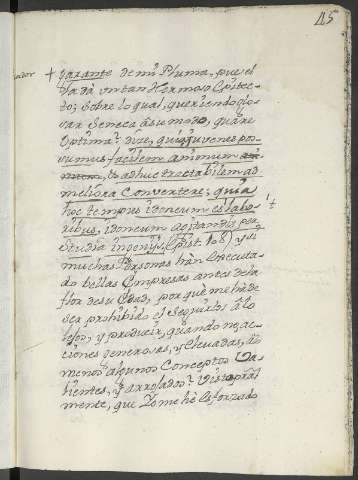 45
+ garante de mi Pluma, pues el
da dà un tan Hermoso Epitec-
to; sobre lo qual, queriendo glo-
sar Seneca à su modo, quare
optima? dize, quia juvenes pos-
sumus facilem animum
& adhuc tractabilem ad
meliora convertere; quia
hoc tempus idoneum est labo-
ribus, idoneum agitandis per
studia ingenijs, (Epist. 108) y si
muchas Personas hàn executa-
do bellas Empresas antes de la
flor de su Edad, por què me hà de
ser prohibido el seguirlos à lo
lejos, y producir, quando no, ac-
ciones generosas, y elevadas, à lo
menos algunos Conceptos Va-
lientes, y arrojados?
mente, que Yo me hè esforzado